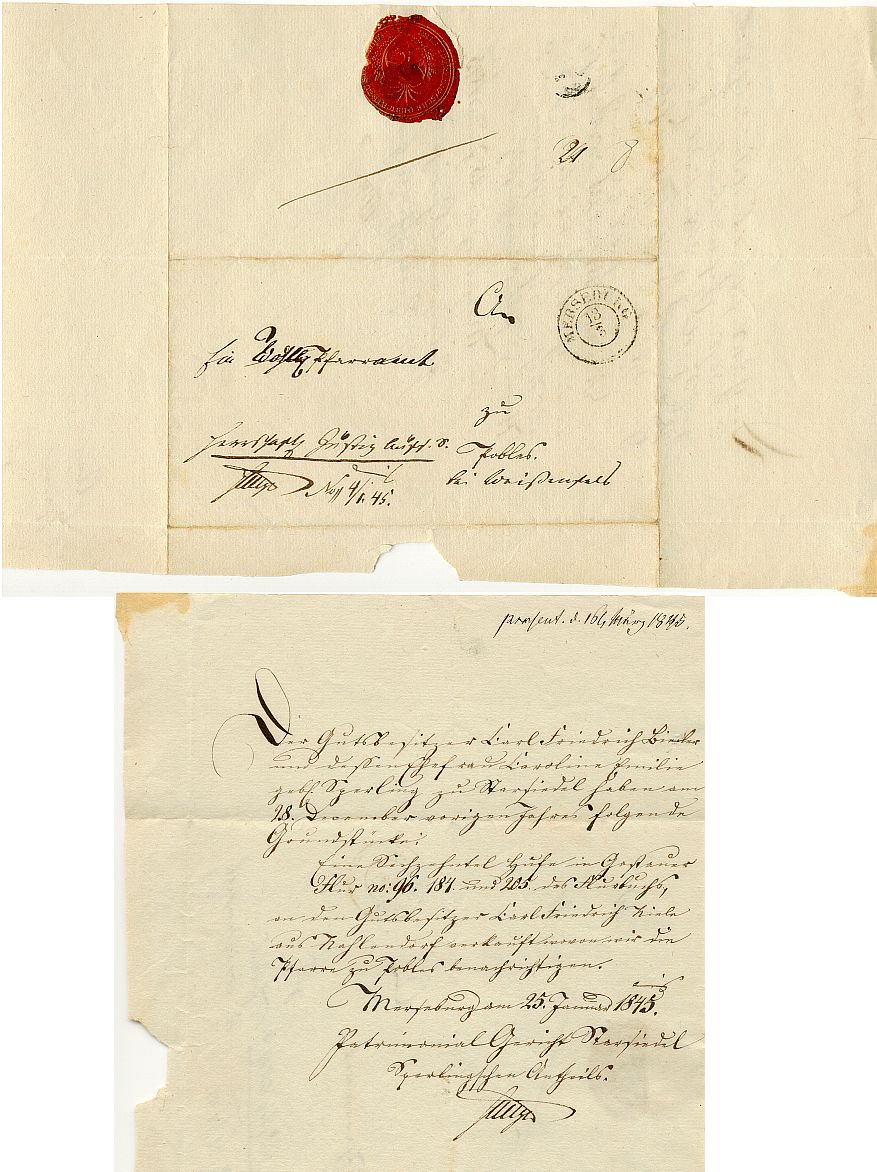 21
An
MERSEBURG
13/3
Ein Wohll. Pfarramt
zu
Pobles.
bei Weißenfels
4/1. 45.
present. d. 16. März 1845.
Der Gutsbesitzer Carl Friedrich Bieler
und dessen Ehefrau Caroline Emilie
geb. Sperling zu Starsiedel haben am
28. December vorigen Jahres folgende
Grundstücke:
Eine Sechzehntel Hufe in Gostauer
Flur no: 96. 184. und 205 des Flurbuchs,
an den Gutsbesitzer Carl Friedrich Kiele
aus Kahlendorf verkauft wovon wir die
Pfarre zu Pobles benachrichtigen.
Merseburg am 25. Januar 1845.
Patrimonial Gericht Starsiedel
Sperlingschen Antheils.